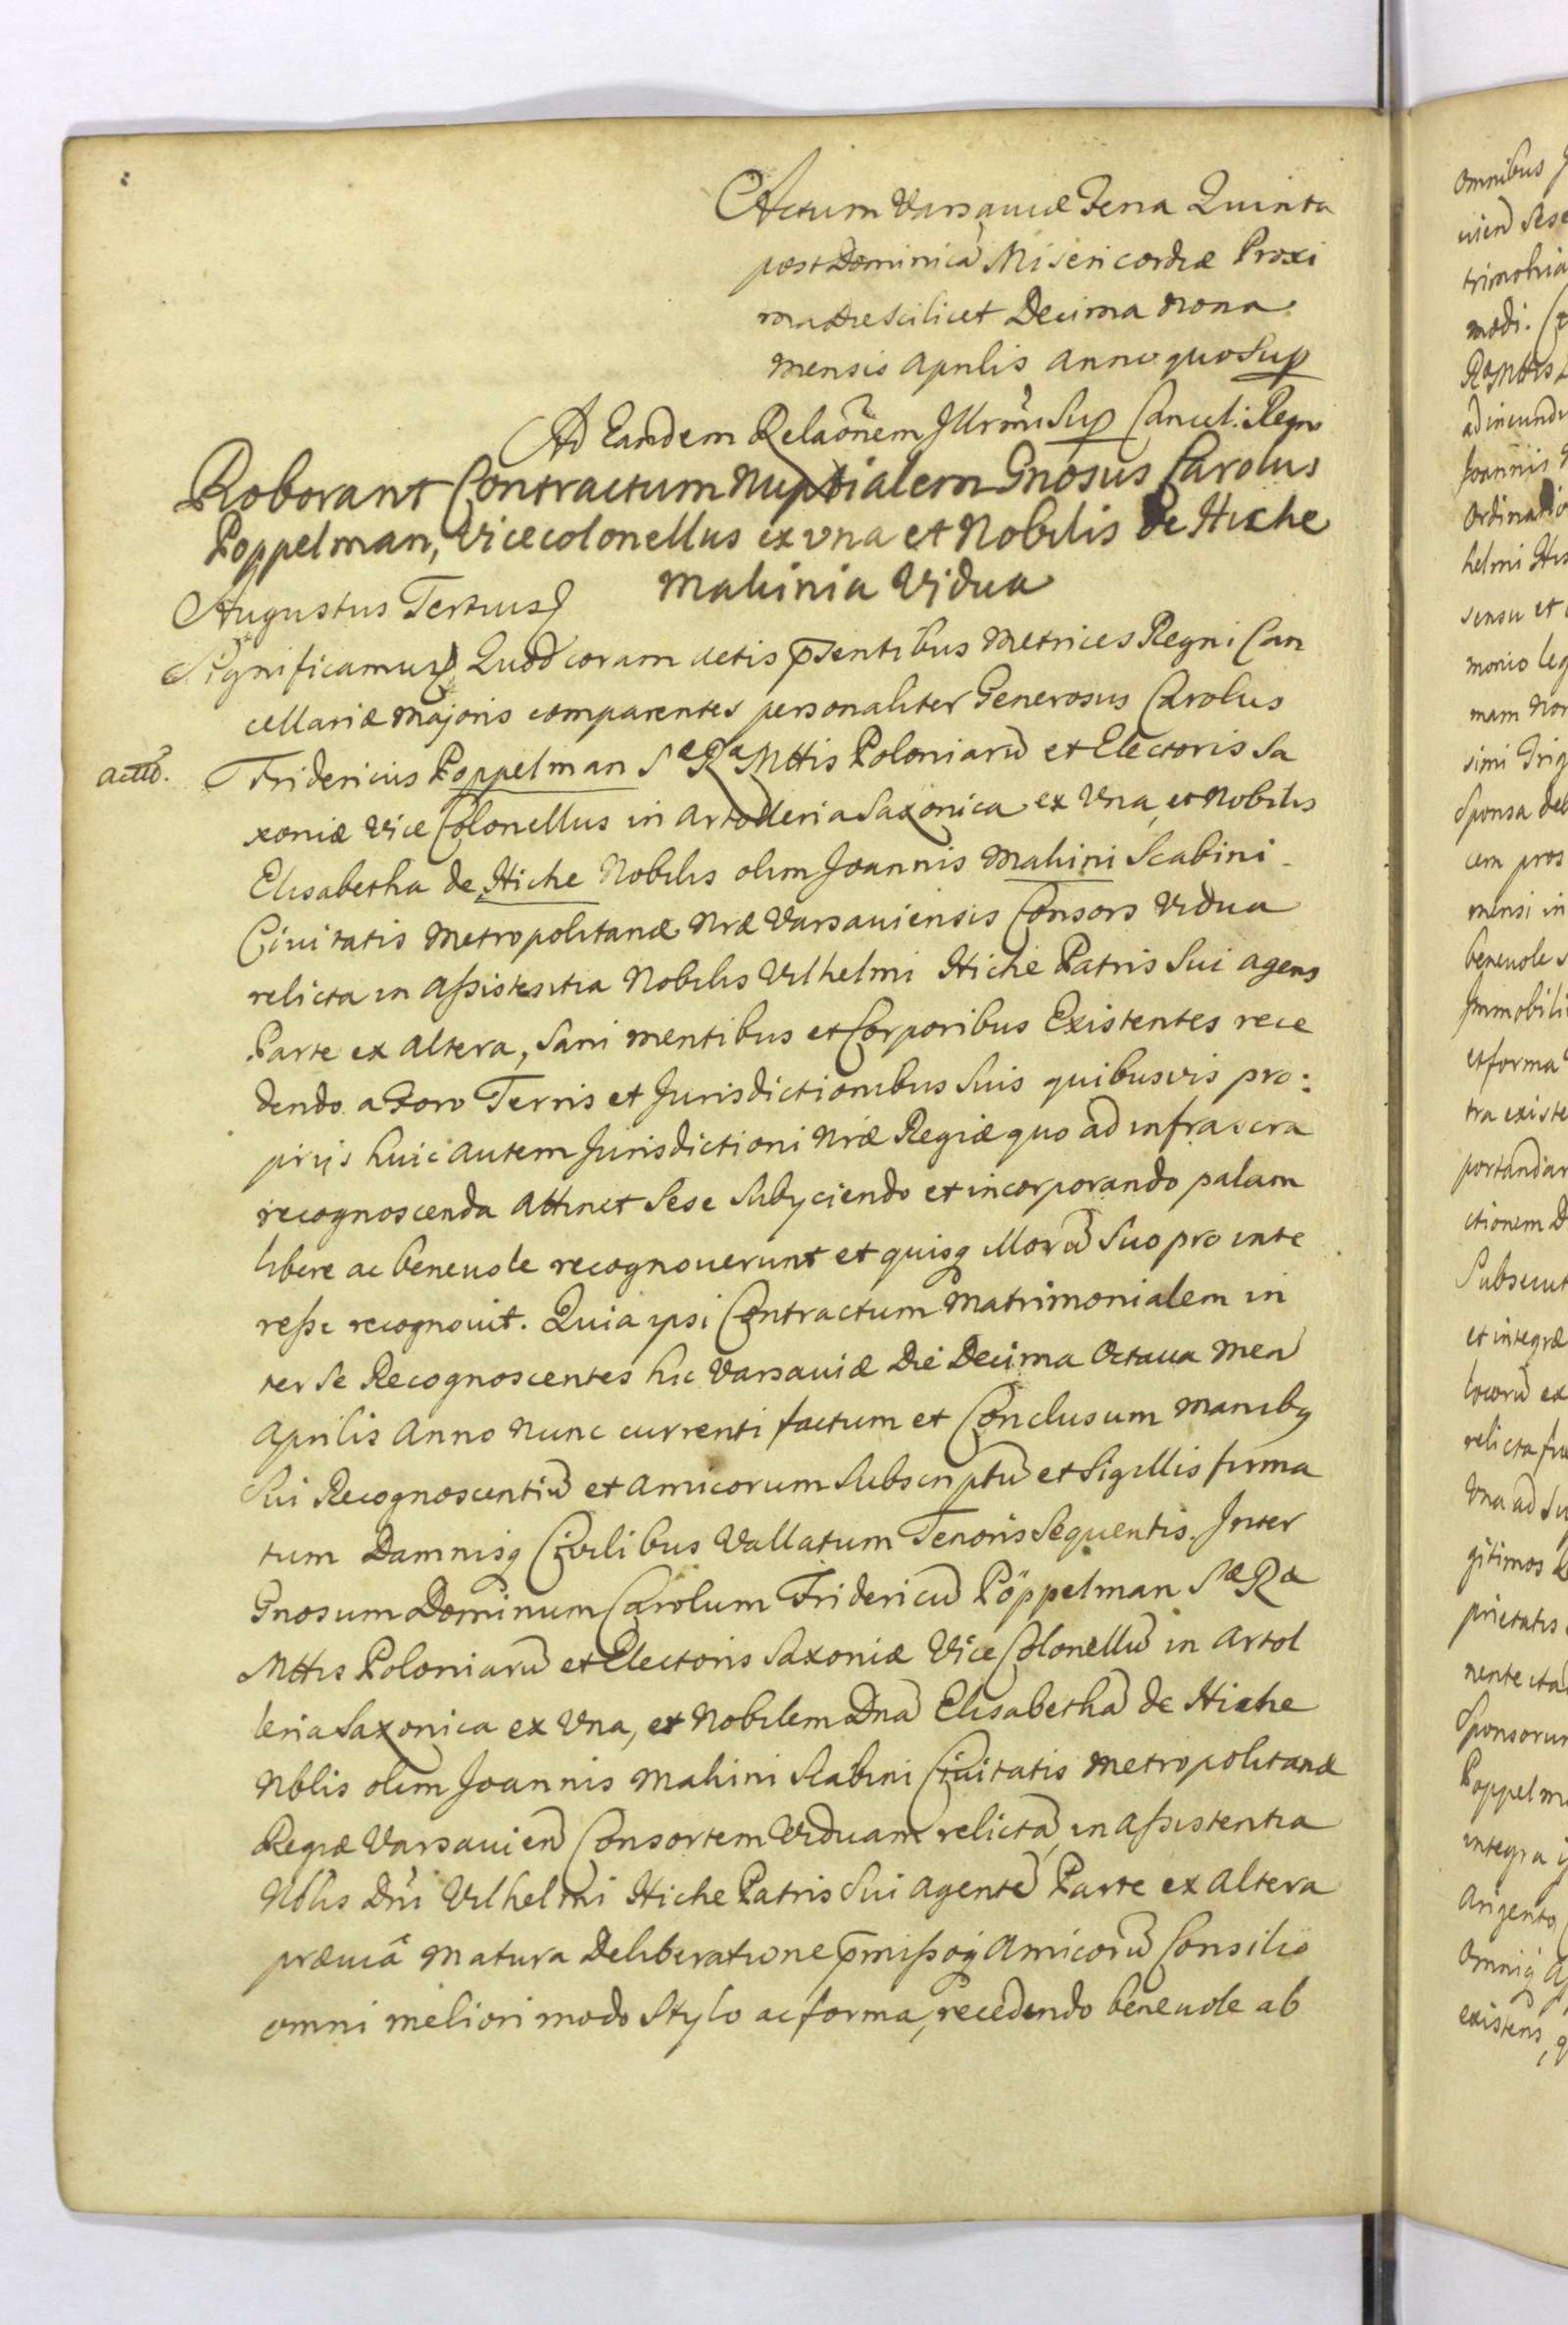 Actum Varsaviæ Feria Quinta
post Dominicā Misericordiæ Proxi
ma die scilicet Decima nona
mensis Aprilis Anno quo Sup
Ad Eandem Relaõnem Illrmi Sup Cancel: Regni
Roborant Contractum Nuptialem Gnosus Carolus
Poppelman, Vicecolonellus ex vna et Nobilis de Hiche
Mahinia Vidua
Augustus Tertius
Significamus Quod coram actis p̄sentibus Metrices Regni Can
cellariæ Majoris comparentes personaliter Generosus Carolus
Fridericus Poppelman Sæ Ræ Mttis Poloniarū et Electoris Sa
xoniæ Vice Colonellus in Artolleria Saxonica ex Vna, et Nobilis
Elisabetha de Hiche Nobilis olim Joannis Mahini Scabini
Civitatis Metropolitanæ Nræ Varsaviensis Consors Vidua
relicta in Assistentia Nobilis Vilhelmi Hiche Patris Sui agens
Parte ex altera, Sani mentibus et Corporibus Existentes rece
dendo a Foro Terris et Jurisdictionibus Suis quibusvis pro:
prijs huic autem Jurisdictioni Nræ Regiæ quo ad infrascra
recognoscenda attinet Sese Subyciendo et incorporando palam
libere ac benevole recognoverunt et quisq illorū Suo pro inte
resse recognovit. Quia ipsi Contractum Matrimonialem in
ter Se Recognoscentes hic Varsaviæ Die Decima Octava Men
Aprilis Anno Nunc currenti factum et Conclusum Manibq
Sui Recognoscentiū et Amicorum Subscriptū et Sigillis firma
tum Damnisq Civilibus Vallatum Tenoris Sequentis. Inter
Gnosum Dominum Carolum Fridericū Pöppelman Sæ Ræ
Mttis Poloniarū et Electoris Saxoniæ Vice Colonellū in Artol
leria Saxonica ex Vna, et Nobilem Dnā Elisabethā de Hiche
Nblis olim Joannis Mahini Scabini Civitatis Metropolitanæ
Regiæ Varsavien Consortem Viduam relictā, in Assistentia
Nblis Dni Vilhelmi Hiche Patris Sui agentē Parte ex Altera
præviâ Matura Deliberatione p̄missoq Amicorū Consilio
omni meliori modo Stylo ac forma, recedendo benevole ab
omnibus
trimonia
modi.
ad ineundu
Joannis
Ordinatio
helmi
sensu et
monio leg
mam Non
Sponsa
cem pros
mensi in
benevole
Immobili
et forma
tra existe
portandar
ctionem D
Subsecut
et integræ
locorū ex
relicta
Vna ad
gitimos
prietatis
nente
Sponsorum
Poppelm
integra
Argento
existens,